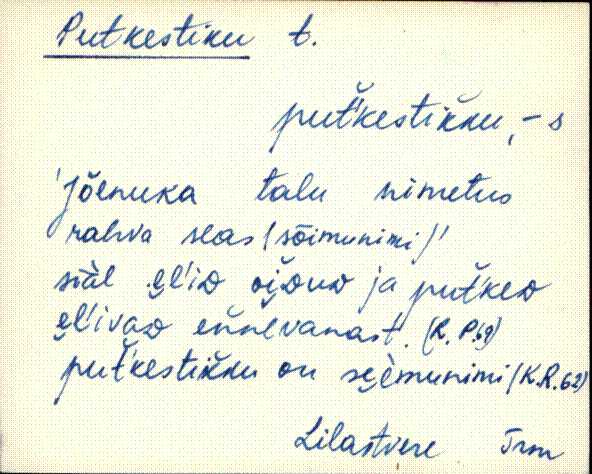 Putkestiku t.
put̆'kestik̆ku, -s
'Jõenuka talu nimetus
rahva seas (sõimunimi)'
siàl el'iᴅ oi̯ᴅuᴅ ja put̆'keᴅ
el'ivaᴅ en̆nevanast. (R. P. 69)
put̆'kestik̆ku on sei̯èmunimi (K.R. 62)
Lilastvere Trm